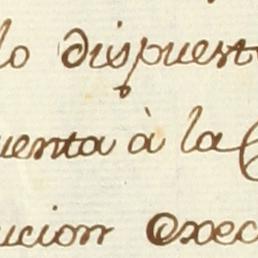 lo dispuest
uenta à la C
ucion exec